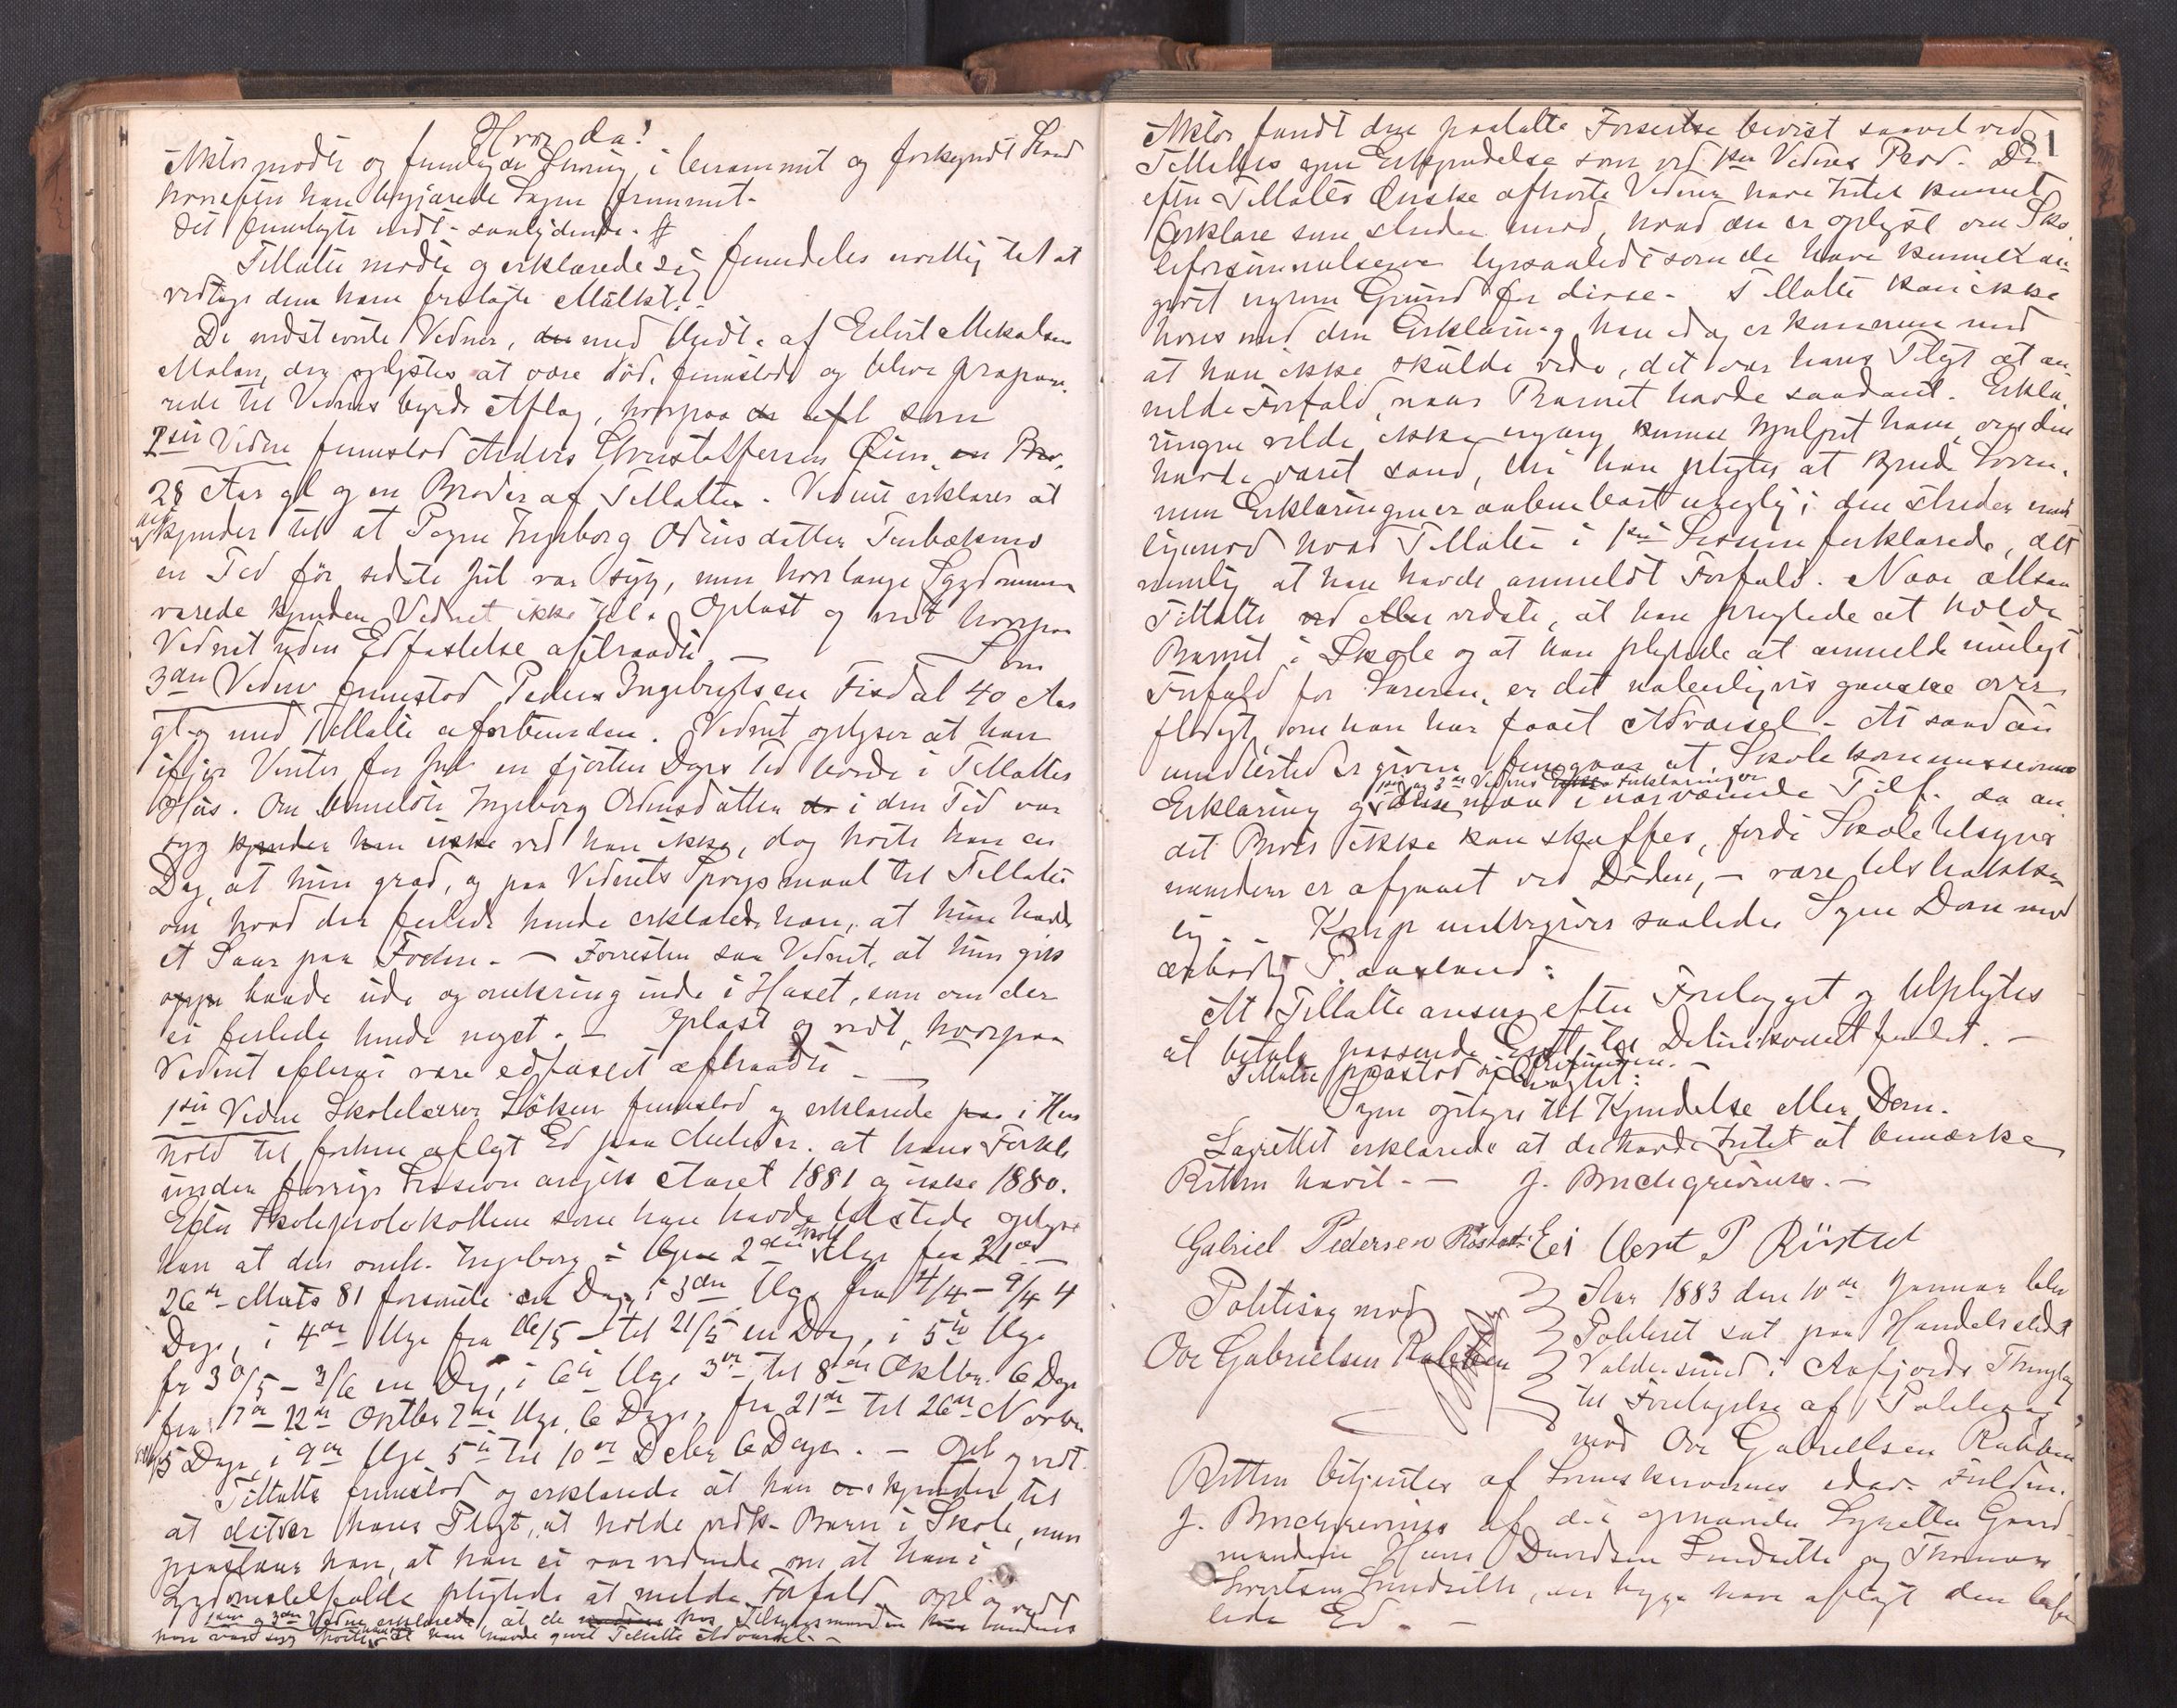 Hvor da!
Aktor mødte og fremlagde Stevning i berammet og forkyndt Stand
hvorefter han begjærede Sagen fremmet.
Det fremlagte vedt. saalydende. #
Tiltalte mødte og erklærede sig fremdeles uvillig til at
vedtage den ham forelagte Mulkt.
De indstevnte Vidner, med Undt. af Eilert Mekalsen
Malan, der oplystes at være død, fremstode og bleve præpare-
rede til Vidners byrds Aflæg, hvorpaa som
2det Vidne fremstod Anders Christoffersen Øien,
28 Aar gl og en Broder af Tiltalte. Vidnet erklærer at
kjender til at Pigen Ingeborg Odinsdatter Teibækmo
en Tid før sidste Jul var syg, men hvor længe Sygdommen
varede kjender Vidnet ikke til. Oplæst og vedt hvorpaa
Vidnet uden Edfæstelse aftraadte. Som
3die Vidne fremstod Peder Ingebrigtsen Fisdal 40 Aar
gl og med Tiltalte uforbunden. Vidnet oplyser at han
ifjor Vinter før Jul en fjorten Dages Tid boede i Tiltaltes
Hus. Om bemeldte Ingeborg Odinsdatter i den Tid var
syg ved han ikke, dog hørte han en
Dag, at hun græd, og paa Vidnets Spørgsmaal til Tiltalte
om hvad der feilede hende erklærede han, at hun havde
et Saar paa Foden. - Forresten saa Vidnet, at hun gik
baade ude og omkring inde i Huset, som om der
ei feilede hende noget. - Oplæst og vedt, hvorpaa
Vidnet aftraadte
1ste Vidne Skolelærer Løken fremstod og erklærede i Hen
hold til forhen aflagt Ed paa Anledn. at hans Forkl.
under forrige Session angik Aaret 1881 og ikke 1880.
Efter Skoleprotokollen som han havde tilstede oplyser
han at den omh. Ingeborg i 2den Uge fra 21de
26de Marts 81 forsømte en Dag, i 3die Uge fra 4/4 - 9/4 4
Dage, i 4de Uge fra 16/5 til 21/5 en Dag, i 5te Uge
fr 30/5 - 3/6 en Dag, i 6te Uge 3die til 8de Oktbr. 6 Dage
fra 17de 22de Oktbr 7de Uge, 6 Dage, fra 21de til 26de Novbr
5 Dage, i 9de Uge 5te til 10de Decbr 6 Dage. - Opl og vedt.
Tiltalte fremstod og erklærede at han kjender til
at det var hans Pligt, at holde Barn i Skole, men
paastaar han, at han ei var vidende om at han i
Sygdomstilfælde pligtede at melde Forfald, opl og vedt
1ste og 3die Vidne erklærede, at de hos Tilsynsmanden
han var syg hørte at han havde givet Tiltalte Advarsel. -
81
Aktor fandt den paatalte Forseelse bevist saavel ved
Tiltaltes egen Erkjendelse som ved 1ste Vidnes Prod. De
efter Tiltaltes Ønske afhørte Vidner have Intet kunnet
forklare som strider mod, hvad der er oplyst om Sko
leforsømmelserne ligesaalidt som de have kunnet an
givet nogen Grund for disse. Tiltalte kan ikke
høres med den Erklæring han idag er kommen med
at han ikke skulde vide, det var hans Pligt at an
melde Forfald, naar Barnet havde saadant. Erklæ
ringen vilde ikke engang kunne hjulpet ham, om den
havde været sand, thi han pligter at kjende Loven,
men Erklæringen er aabenbart urigtig; den strider imod
ligemod hvad Tiltalte i 1ste Session forklarede, det
nemlig at han havde anmeldt Forfald. Naar altsaa
Tiltalte vidste, at han pligtede at holde
Barnet i Skole og at han pligtede at anmelde muligt
Forfald for Læreren, er det naturligvis ganske over
flødigt, om han har faaet Advarsel. At saadan
imidlertid er given fremgaar af Skolekommissionens
Erklæring og 1ste og 3die Vidnes Forklaringer maa i nærværende Tilf. da an
det Bevis ikke kan skaffes, fordi Skoletilsyns
manden er afgaaet ved Døden, - være tilstrækkel
ig. - Komp indbragtes saaledes Sagen Dom med
ærbødig Paastand:
At Tiltalte anses efter Forelægget og tilpligtes
at betale passende til Delinkventfondet. -
Tiltalte paastod sig frifunden. -
Sagen optages til Kjendelse eller Dom.
Lagrettet erklærede at de havde Intet at bemærke
Retten hævet. - J. Brechgrevinus. -
Gabriel Pedersen Røstad Ei Bent P Rüstad
Politisag mod
Ove Gabrielsen Rabben
Aar 1883 den 10de Januar blev
Politiret sat paa Handelsstedet
Valdersund i Aafjords Thinglag
til Foretagelse af Politisag
mod Ove Gabrielsen Rabben
Retten betjentes af Sorenskriverens edsv. Fuldm.
J. Brechgrevinus af de opnævnte Lagrette Gaard
mændene Hans Davidsen Sundsetth og Thomas
Sivertsen Sundsetth, der begge have aflagt den befa
lede Ed. -